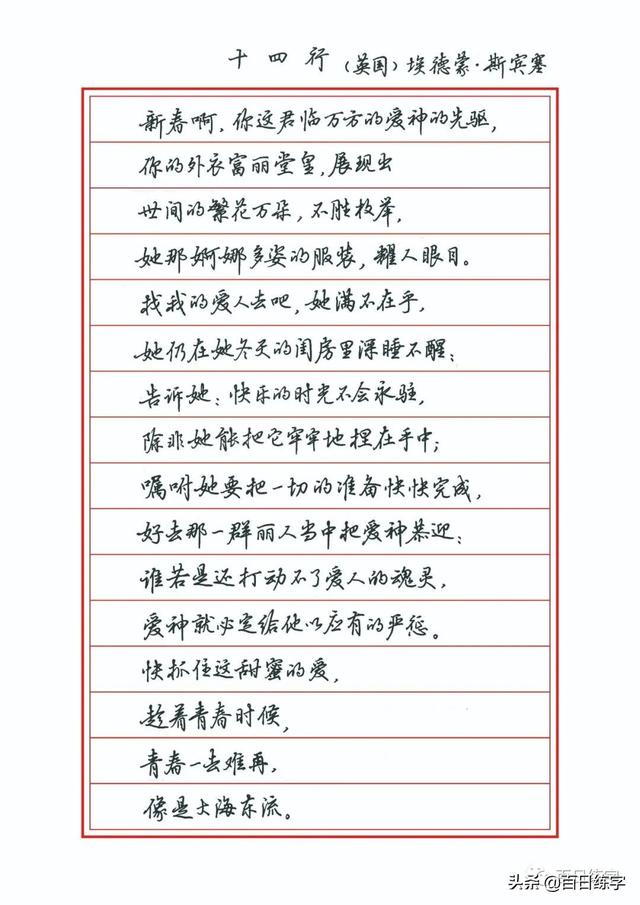 十四行 (英国) 埃德蒙·斯宾塞
新春啊,你这君临万方的爱神的先驱,
你的外衣富丽堂皇,展现出
世间的繁花万朵,不胜枚举,
她那婀娜多姿的服装,耀人眼目。
找我的爱人去吧,她满不在乎,
她仍在她冬天的闺房里深睡不醒;
告诉她:快乐的时光不会永驻,
除非她能把它牢牢地捏在手中;
嘱咐她要把一切的准备快快完成,
好去那一群丽人当中把爱神恭迎;
谁若是还打动不了爱人的魂灵,
爱神就必定给他以应有的严惩。
快抓住这甜蜜的爱,
趁着青春时候,
青春一去难再,
像是大海东流。
百日练字
头条 @百日练字